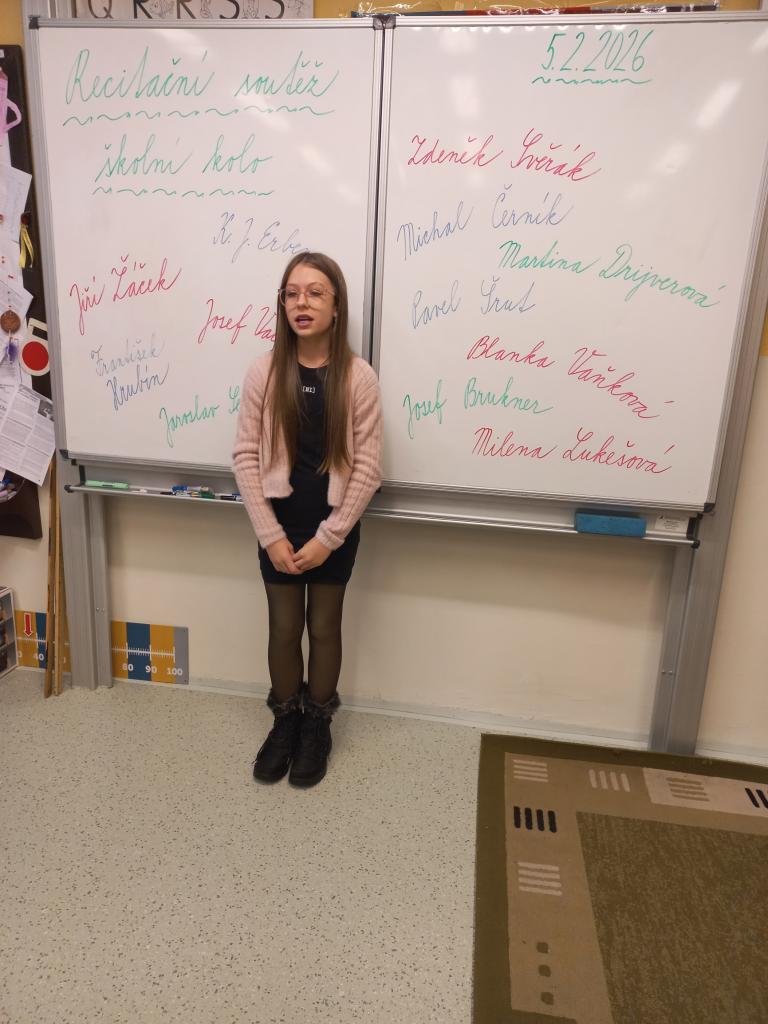 Q R R S S
Recitační soutěž
školní kolo
K. J. Erben
Jiří Žáček
Josef
František
Hrubín
Jaroslav
5.2.2026
Zdeněk Svěrák
Michal Černík
Martina Drijverová
Pavel Šrut
Blanka Vaňková
Josef Brukner
Milena Lukešová
40
80 90 100